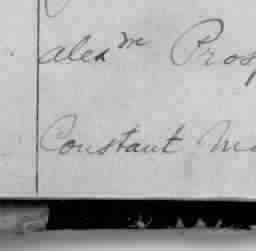 alex^me Prosp
Constant Ma